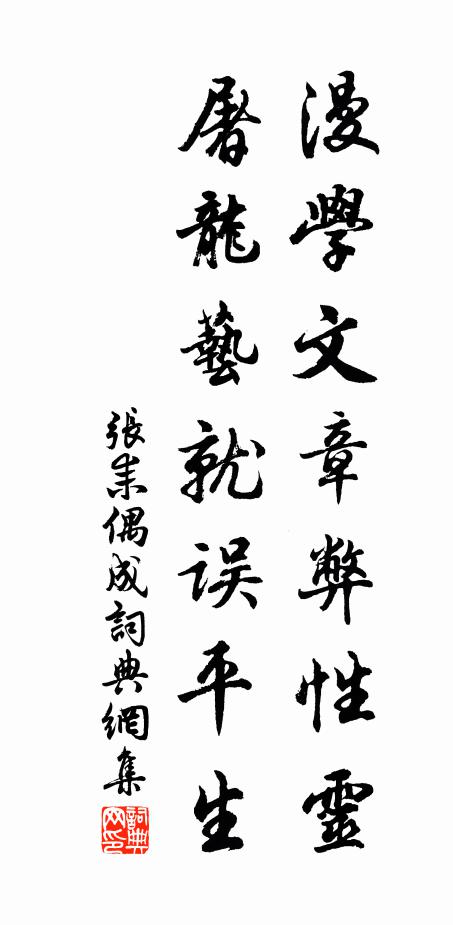 漫學文章弊性靈
屠龍藝就误平生
張耒偶成詞典網集
詞典网印